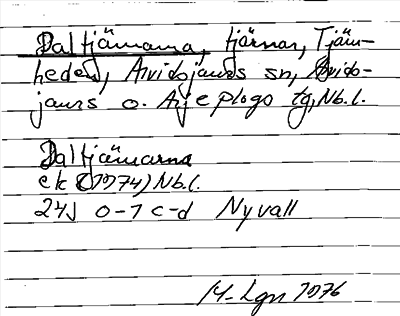 Daltjärnarna, tjärnar, Tjäm-
heden, Arvidsjaurs sn, Arvids-
jaurs o. Arjeplogs tg, Nb.l.
Daltjärnarna
ek (1974) Nb.l.
24J 0-1 c-d Nyvall
1976